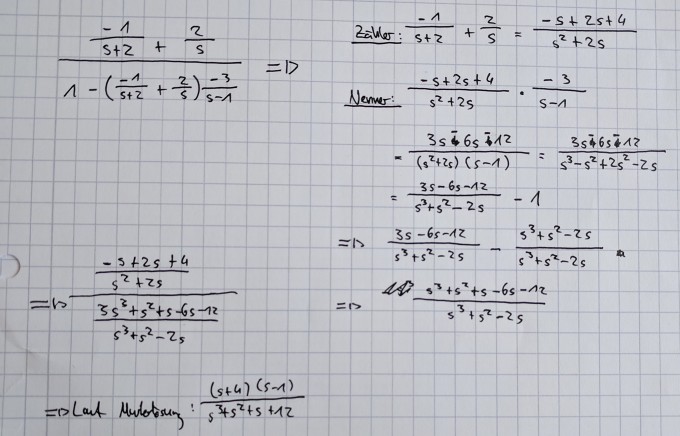 (-1/(s+2) + 2/s) / (1 - (-1/(s+2) + 2/s) -3/(s-1)) =>
Zähler: -1/(s+2) + 2/s = (-s+2s+4)/(s²+2s)
Nenner: (-s+2s+4)/(s²+2s) · -3/(s-1)
= (3s-6s-12)/((s²+2s)(s-1)) = (3s-6s-12)/(s³-s²+2s²-2s)
= (3s-6s-12)/(s³+s²-2s) - 1
=> (3s-6s-12)/(s³+s²-2s) - (s³+s²-2s)/(s³+s²-2s)
=> (s³+s²+s-6s-12)/(s³+s²-2s)
=> ((-s+2s+4)/(s²+2s)) / ((3s³+s²+s-6s-12)/(s³+s²-2s))
=> Laut Musterlösung: (s+4)(s-1)/(s³+s²+s+12)